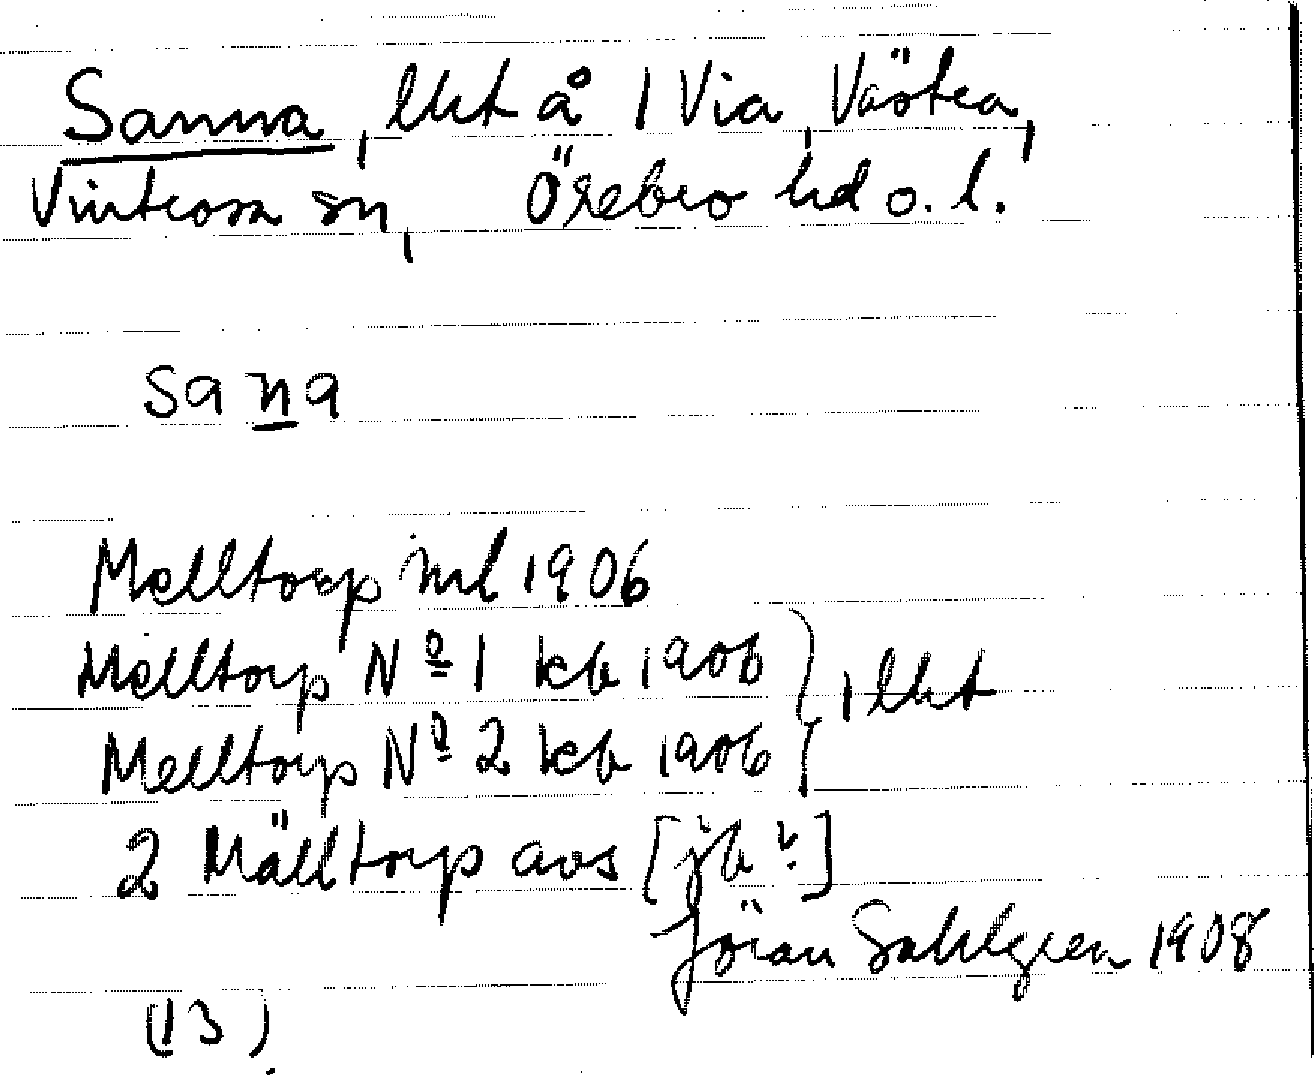 Sanna, lht å 1 Via, Västra,
Vintrosa sn, Örebro hd o. l.
sana
Melltorp ml 1906
Melltorp Nº 1 kb 1906 } 1 lht
Melltorp Nº 2 kb 1906
2 Mälltorp avs [jb ?]
Jöran Sahlgren 1908
(13)